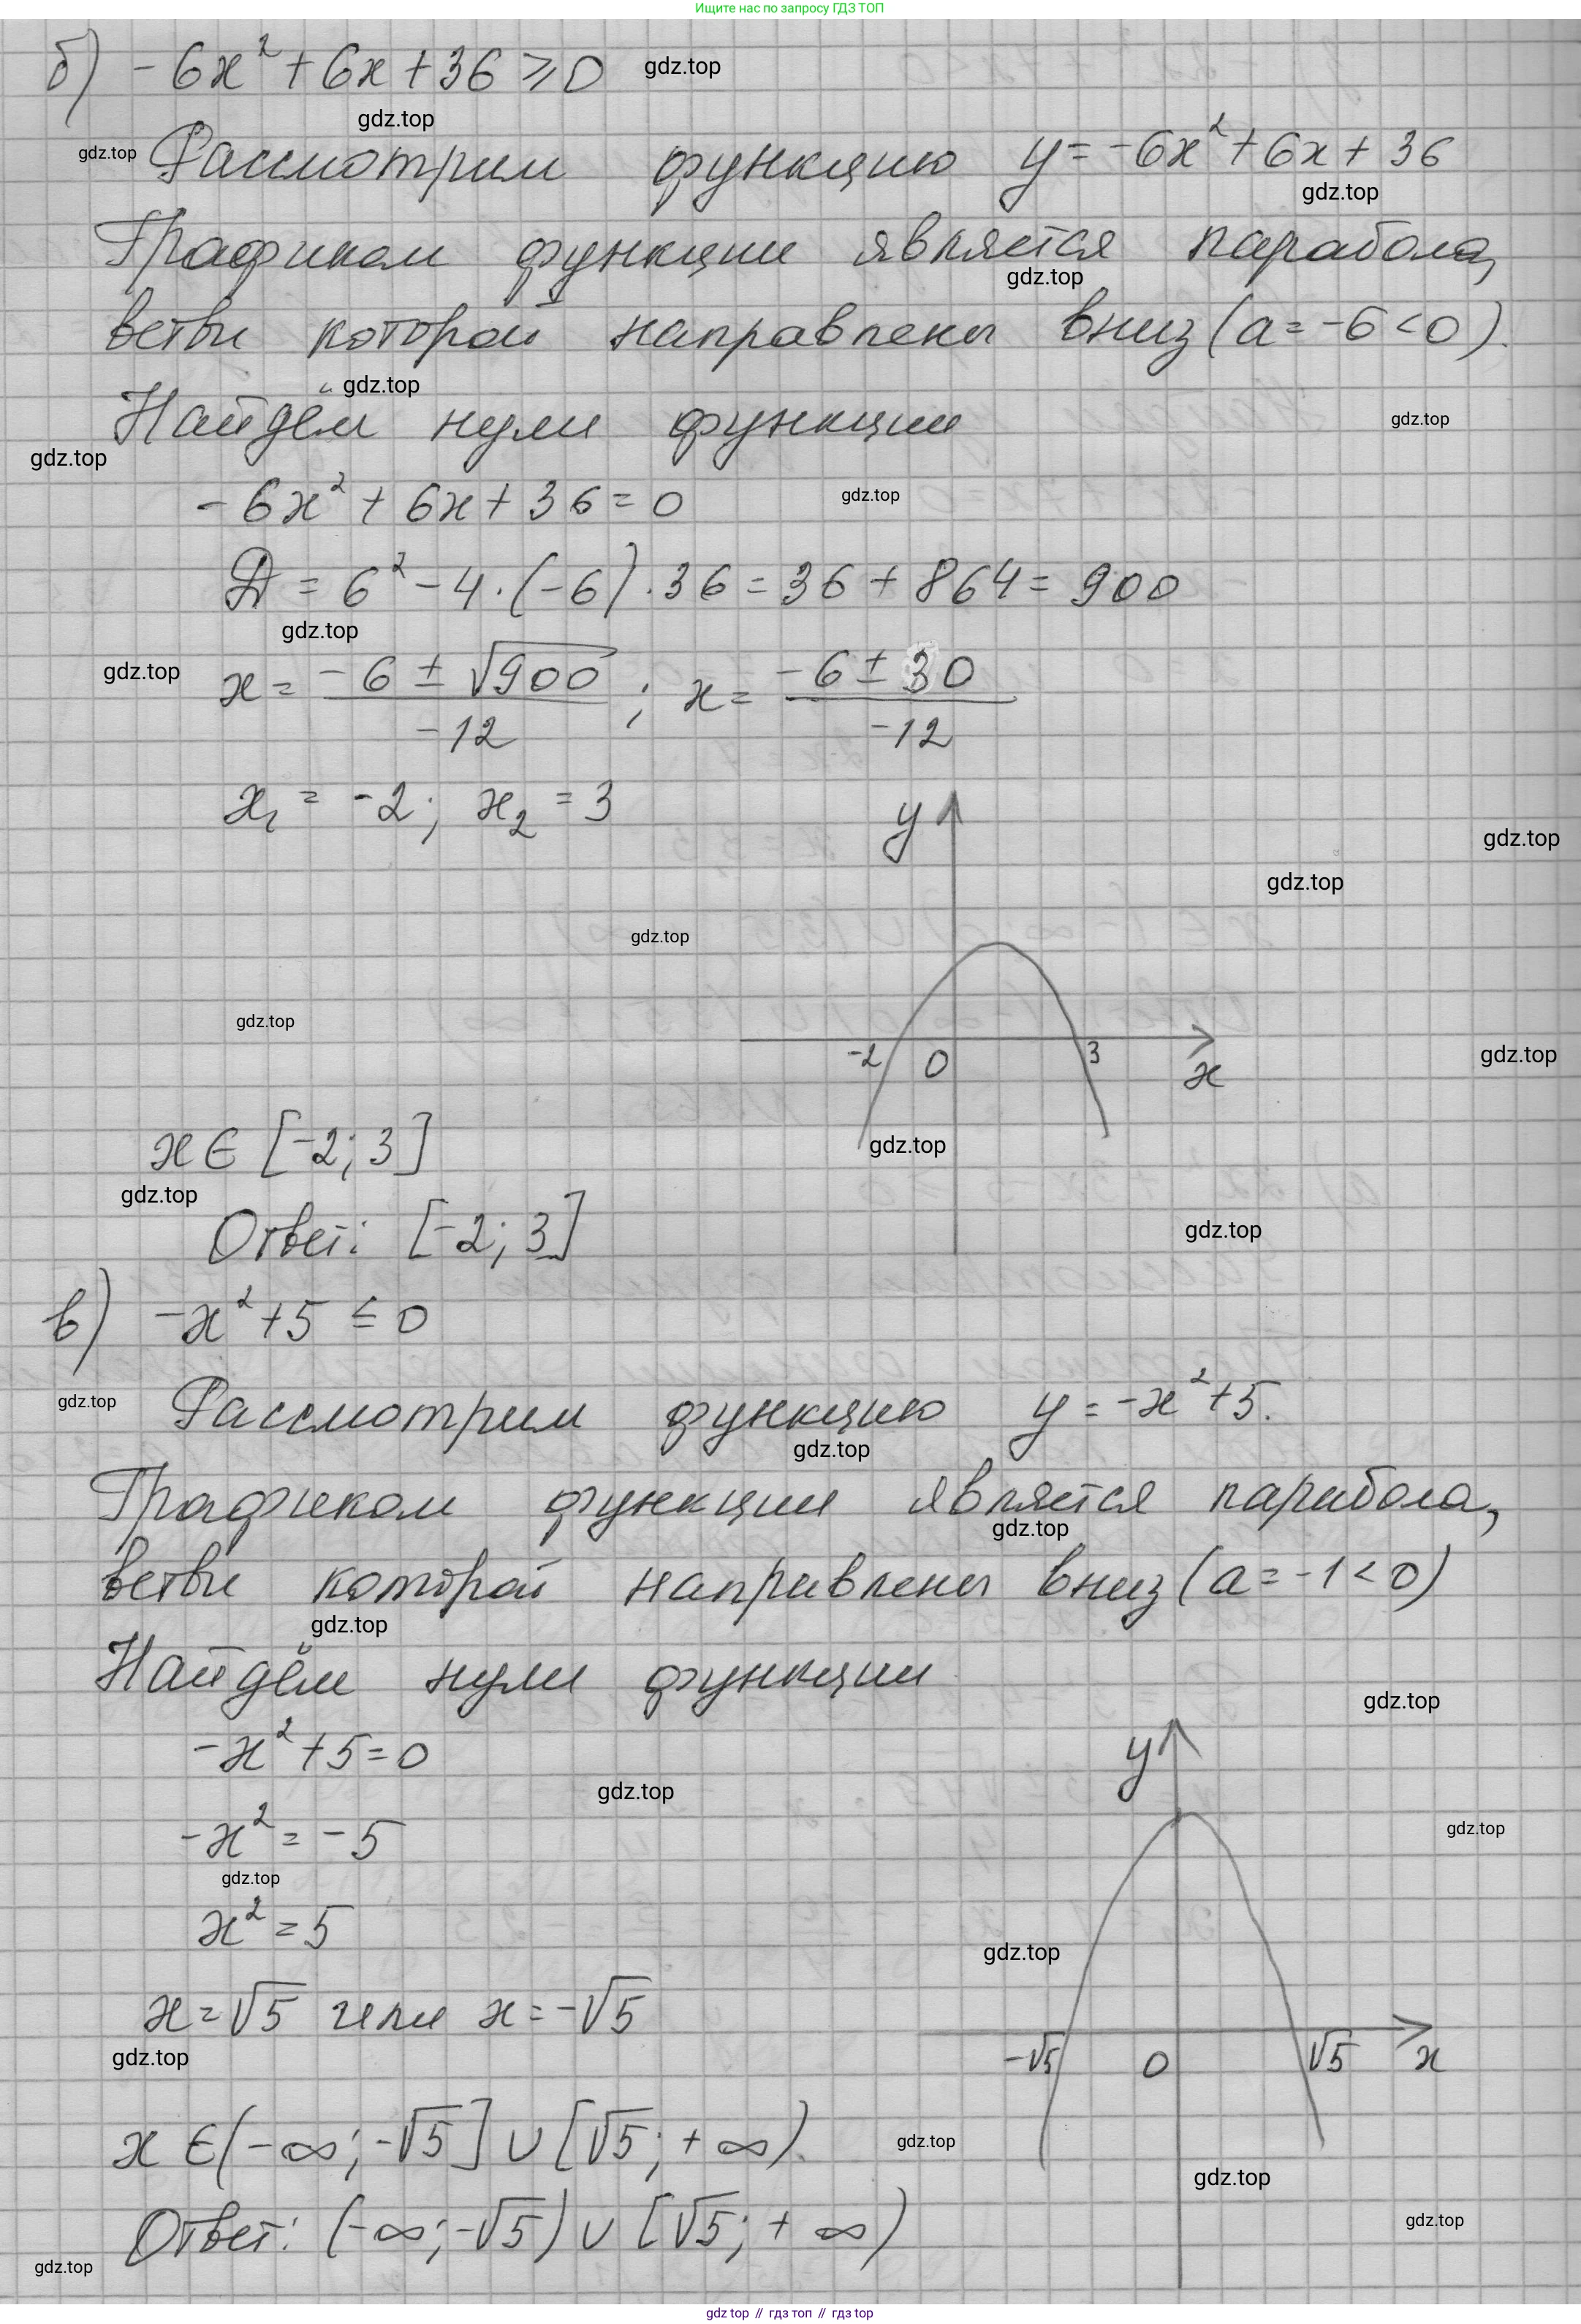 Ищите нас по запросу ГДЗ ТОП
б) -6x² + 6x + 36 ⩾ 0 gdz.top
gdz.top
gdz.top Рассмотрим функцию y = -6x² + 6x + 36
gdz.top
Графиком функции является парабола,
gdz.top
ветви которой направлены вниз (a = -6 < 0).
gdz.top
Найдём нули функции gdz.top
gdz.top
-6x² + 6x + 36 = 0 gdz.top
D = 6² - 4 · (-6) · 36 = 36 + 864 = 900
gdz.top
gdz.top x = (-6 ± √900)/(-12) ; x = (-6 ± 30)/(-12)
x₁ = -2; x₂ = 3
y
gdz.top
gdz.top
gdz.top
gdz.top
-2 0 3 x gdz.top
x ∈ [-2; 3] gdz.top
gdz.top
Ответ: [-2; 3] gdz.top
в) -x² + 5 ≤ 0
gdz.top Рассмотрим функцию y = -x² + 5.
gdz.top
Графиком функции является парабола,
gdz.top
ветви которой направлены вниз (a = -1 < 0)
gdz.top
Найдём нули функции
gdz.top
-x² + 5 = 0 y
gdz.top
-x² = -5 gdz.top
gdz.top
x² = 5
gdz.top
x = √5 или x = -√5
gdz.top -√5 0 √5 x
x ∈ (-∞; -√5] ∪ [√5; +∞). gdz.top
gdz.top
Ответ: (-∞; -√5) ∪ [√5; +∞) gdz.top
gdz.top
gdz top // гдз топ // гдз top